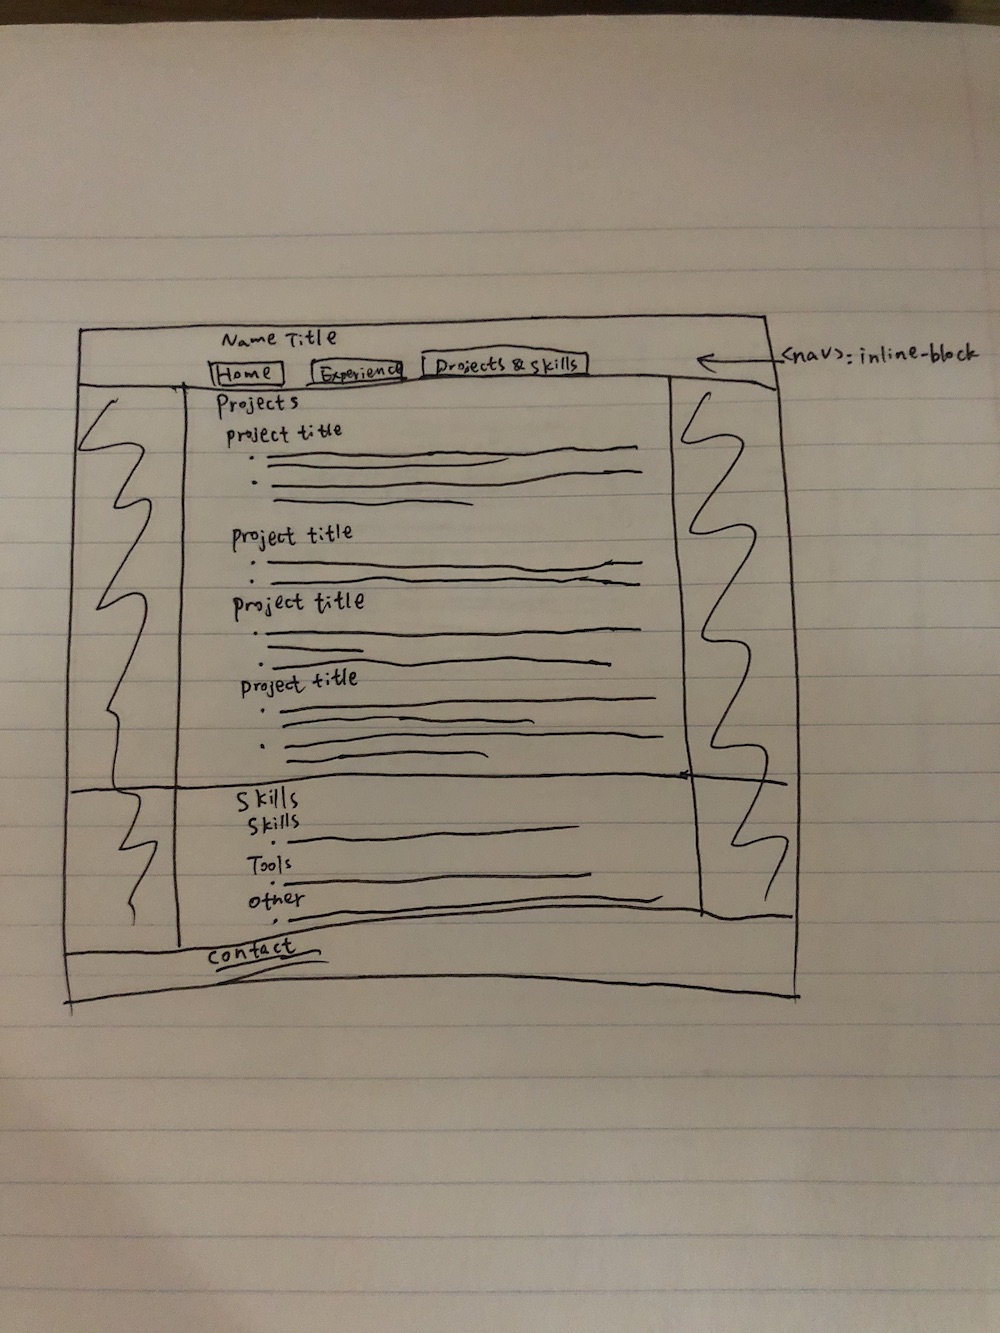 Name Title
Home Experience Projects & Skills
<nav>: inline-block
Projects
project title
Project title
Project title
project title
Skills
Skills
Tools
other
contact